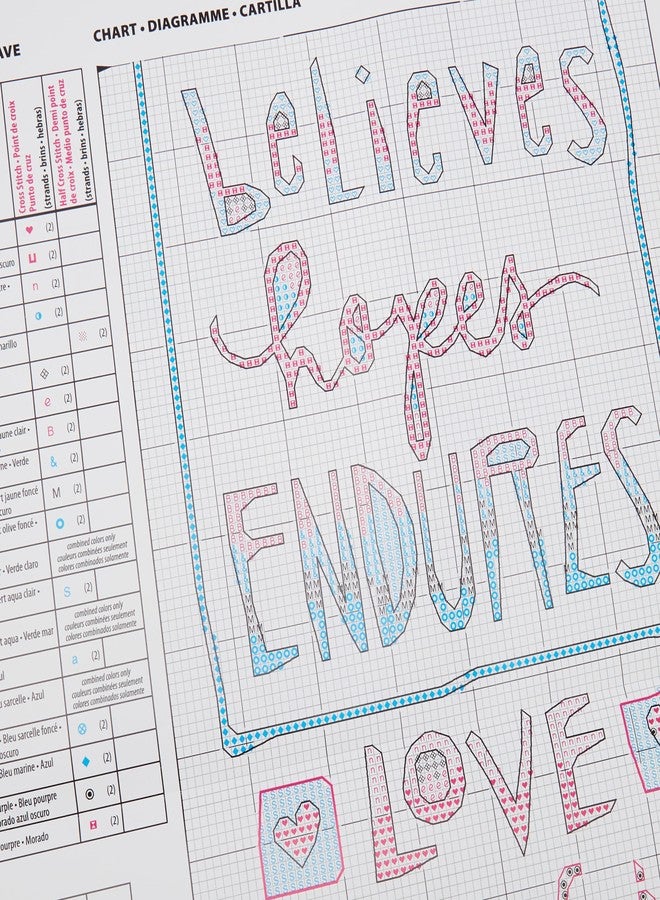 AVE
CHART • DIAGRAMME • CARTILLA
Cross Stitch • Point de croix
Punto de cruz
(strands • brins • hebras)
Half Cross Stitch • Demi point
de croix • Medio punto de cruz
(strands • brins • hebras)
(2)
scuro (2)
re • n (2)
(2)
marillo (2)
(2)
e (2)
aune clair • B (2)
ne • Verde & (2)
rt jaune foncé
curo M (2)
t olive foncé • (2)
• Verde claro
combined colors only
couleurs combinées seulement
colores combinados solamente
ert aqua clair • S (2)
t aqua • Verde mar
combined colors only
couleurs combinées seulement
colores combinados solamente
ul a (2)
u sarcelle • Azul
combined colors only
couleurs combinées seulement
colores combinados solamente
• Bleu sarcelle foncé •
oscuro (2)
Bleu marine • Azul (2)
urple • Bleu pourpre
orado azul oscuro (2)
Pourpre • Morado (2)
believes
hopes
ENDURES
LOVE